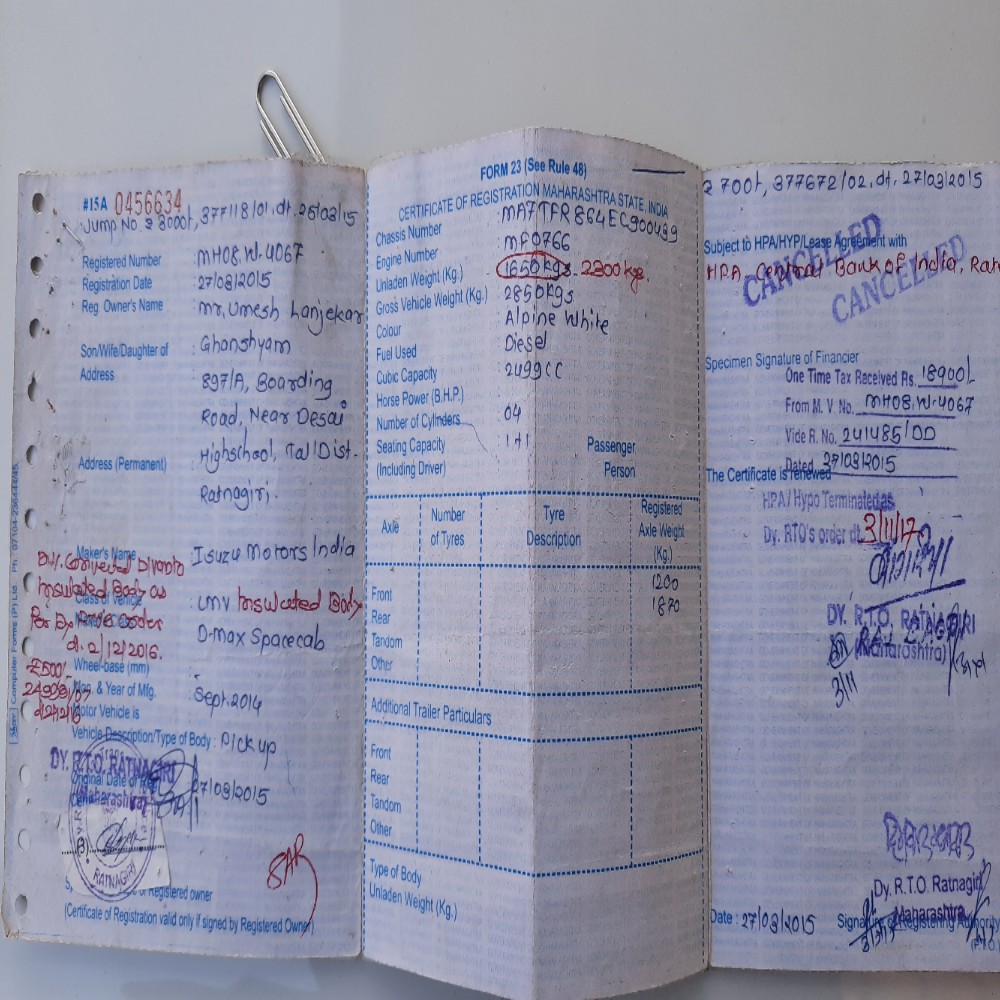 #15A 0456634
Jump No ₹ 8000t, 377118/01.dt. 26/03/15
Registered Number : MH08.W.4067
Registration Date : 27/03/2015
Reg. Owner's Name : mr, Umesh Lanjekar
Son/Wife/Daughter of : Ghanshyam
Address : 897/A, Boarding
Road, Near Desai
Address (Permanent) : Highschool, Tal Dist-
Ratnagiri.
Maker's Name : Isuzu Motors India
Insulated Body as
Class of Vehicle : LMV Insulated Body
D-max Spacecab
d. 2/12/2016.
Wheel-base (mm)
Mon. & Year of Mfg. : Sept. 2014
Motor Vehicle is
Vehicle Description/Type of Body : Pick up
DY. R.T.O. RATNAGIRI
(Maharashtra)
27/03/2015
RATNAGIRI
Registered owner
(Certificate of Registration valid only if signed by Registered Owner)
FORM 23 (See Rule 48)
CERTIFICATE OF REGISTRATION MAHARASHTRA STATE, INDIA
Chassis Number : MA7TFR864EC900499
Engine Number : MF0766
Unladen Weight (Kg.) : 1650 kgs. 2300 kg.
Gross Vehicle Weight (Kg.) : 2850 kgs
Colour : Alpine White
Fuel Used : Diesel
Cubic Capacity : 2499 CC
Horse Power (B.H.P.)
Number of Cylinders : 04
Seating Capacity : 1+1 Passenger
(Including Driver) Person
Axle Number of Tyres Tyre Description Registered Axle Weight (Kg.)
Front 1200
Rear 1870
Tandom
Other
Additional Trailer Particulars
Front
Rear
Tandom
Other
Type of Body
Unladen Weight (Kg.)
₹ 700t, 377672/02.dt. 27/03/2015
Subject to HPA/HYP/Lease Agreement with
HPA Central Bank of India, Ratn
CANCELLED
CANCELLED
Specimen Signature of Financier
One Time Tax Received Rs. 18900/-
From M. V. No. MH08.W.4067
Vide R. No. 241485/DD
Dated 27/03/2015
The Certificate is renewed
HPA / Hypo Terminated as
Dy. RTO's order dt. 3/11/17
DY. R.T.O. RATNAGIRI
(Maharashtra)
3/11
Dy. R.T.O. Ratnagiri
Maharashtra
Date : 27/03/2015 Signature of Registering Authority